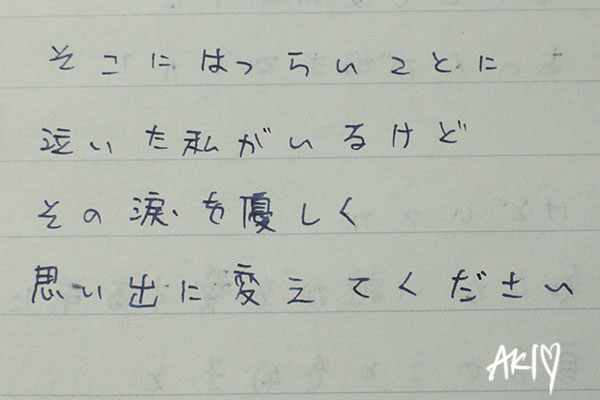 そこにはつらいことに
泣いた私がいるけど
その涙を優しく
思い出に変えてください
AKI♡